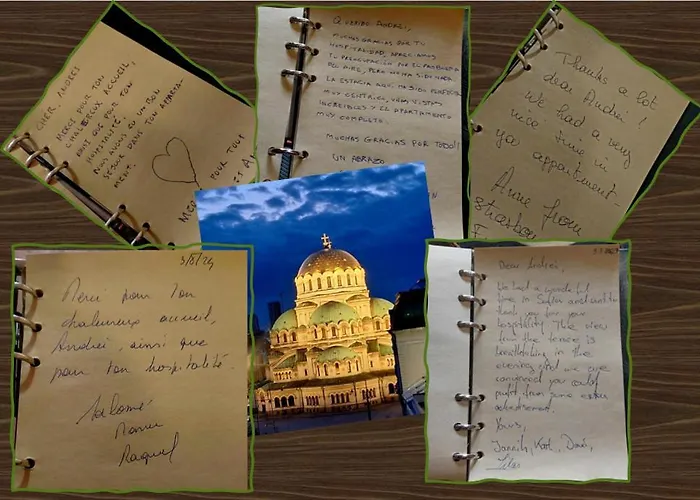 CHER, ANDRES
MERCI POUR TON
CHALEUREUX ACCUEIL,
AINSI QUE POUR TON
HOSPITALITÉ.
NOUS AVONS EU UN BON
SÉJOUR DANS TON APPARTE-
MENT.
POUR TOUT
QUERIDO ANDREI,
MUCHAS GRACIAS POR TU
HOSPITALIDAD,
TU PREOCUPACIÓN POR EL PROBLEMA
DEL AIRE, PERO NO HA SIDO NADA.
LA ESTACIA AQUÍ HA SIDO PERFECTA,
MUY CÉNTRICA, CON VISTAS
INCREIBLES Y EL APARTAMENTO
MUY COMPLETO.
MUCHAS GRACIAS POR TODO!!
UN ABRAZO
Thanks a lot
dear Andrei!
We had a very
nice time in
yo appartment.
Anne from
Strasbou
3/8/24
Merci pour ton
chaleureux accueil,
Andréi, ainsi que
pour ton hospitalité.
Salomé
Raquel
Dear Andrei,
We had a wonderful
time in Sofia and want to
thank you for your
hospitality. The view
from the terrace is
breathtaking in the
evening and we are
convinced you could
profit from some extra
advertisement.
Yours,
Jannik, Kath, David,